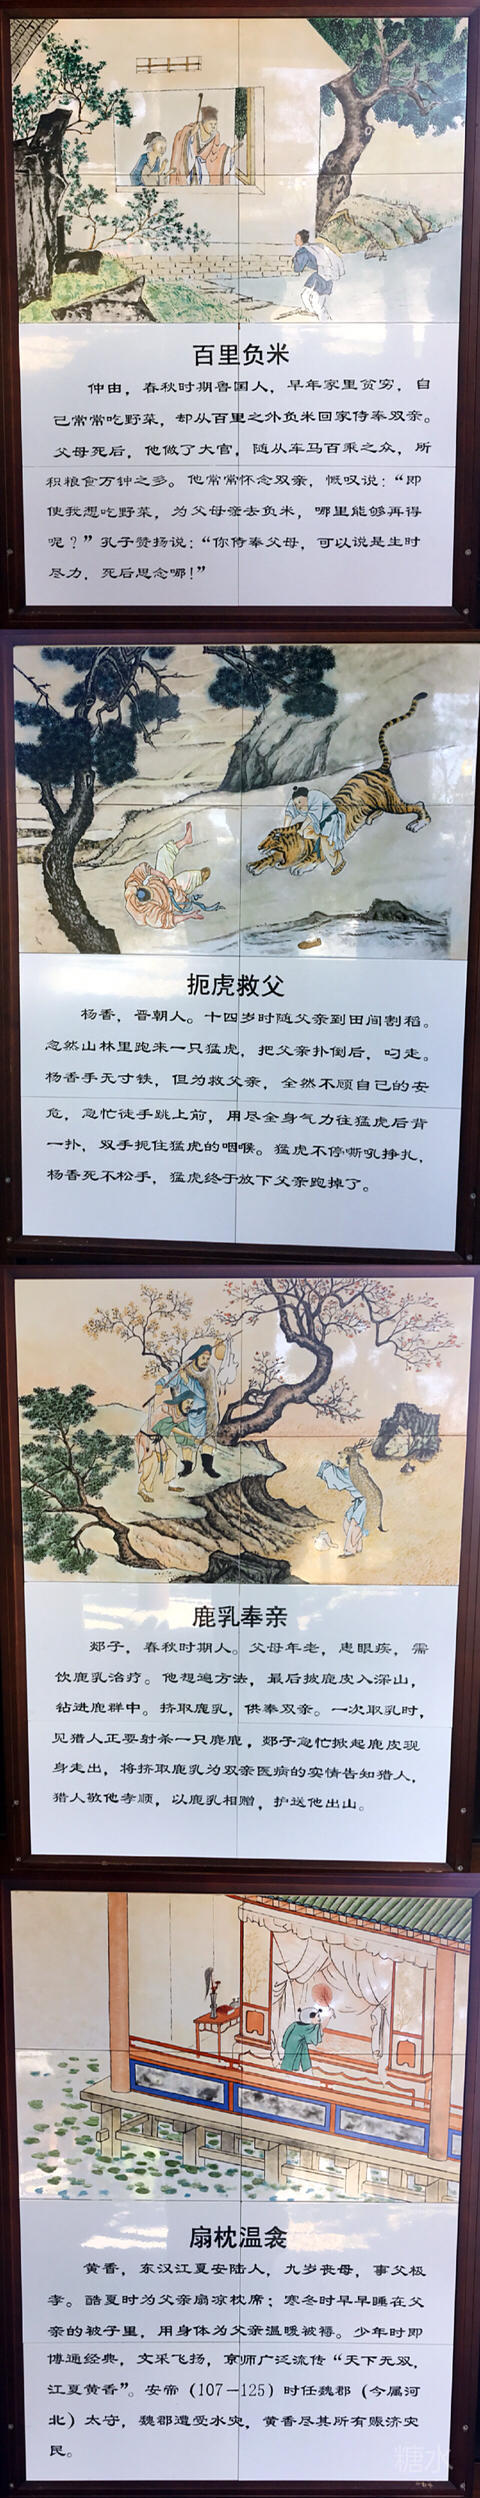 百里负米
仲由，春秋时期鲁国人，早年家里贫穷，自
己常常吃野菜，却从百里之外负米回家侍奉双亲。
父母死后，他做了大官，随从车马百乘之众，所
积粮食万钟之多。他常常怀念双亲，慨叹说：“即
使我想吃野菜，为父母亲去负米，哪里能够再得
呢？”孔子赞扬说：“你侍奉父母，可以说是生时
尽力，死后思念哪！”
扼虎救父
杨香，晋朝人。十四岁时随父亲到田间割稻。
忽然山林里跑来一只猛虎，把父亲扑倒后，叼走。
杨香手无寸铁，但为救父亲，全然不顾自己的安
危，急忙徒手跳上前，用尽全身气力往猛虎后背
一扑，双手扼住猛虎的咽喉。猛虎不停嘶吼挣扎，
杨香死不松手，猛虎终于放下父亲跑掉了。
鹿乳奉亲
郯子，春秋时期人。父母年老，患眼疾，需
饮鹿乳治疗。他想遍方法，最后披鹿皮入深山，
钻进鹿群中。挤取鹿乳，供奉双亲。一次取乳时，
见猎人正要射杀一只麂鹿，郯子急忙掀起鹿皮现
身走出，将挤取鹿乳为双亲医病的实情告知猎人，
猎人敬他孝顺，以鹿乳相赠，护送他出山。
扇枕温衾
黄香，东汉江夏安陆人，九岁丧母，事父极
孝。酷夏时为父亲扇凉枕席；寒冬时早早睡在父
亲的被子里，用身体为父亲温暖被褥。少年时即
博通经典，文采飞扬，京师广泛流传“天下无双，
江夏黄香”。安帝（107－125）时任魏郡（今属河
北）太守，魏郡遭受水灾，黄香尽其所有赈济灾
民。
糖水